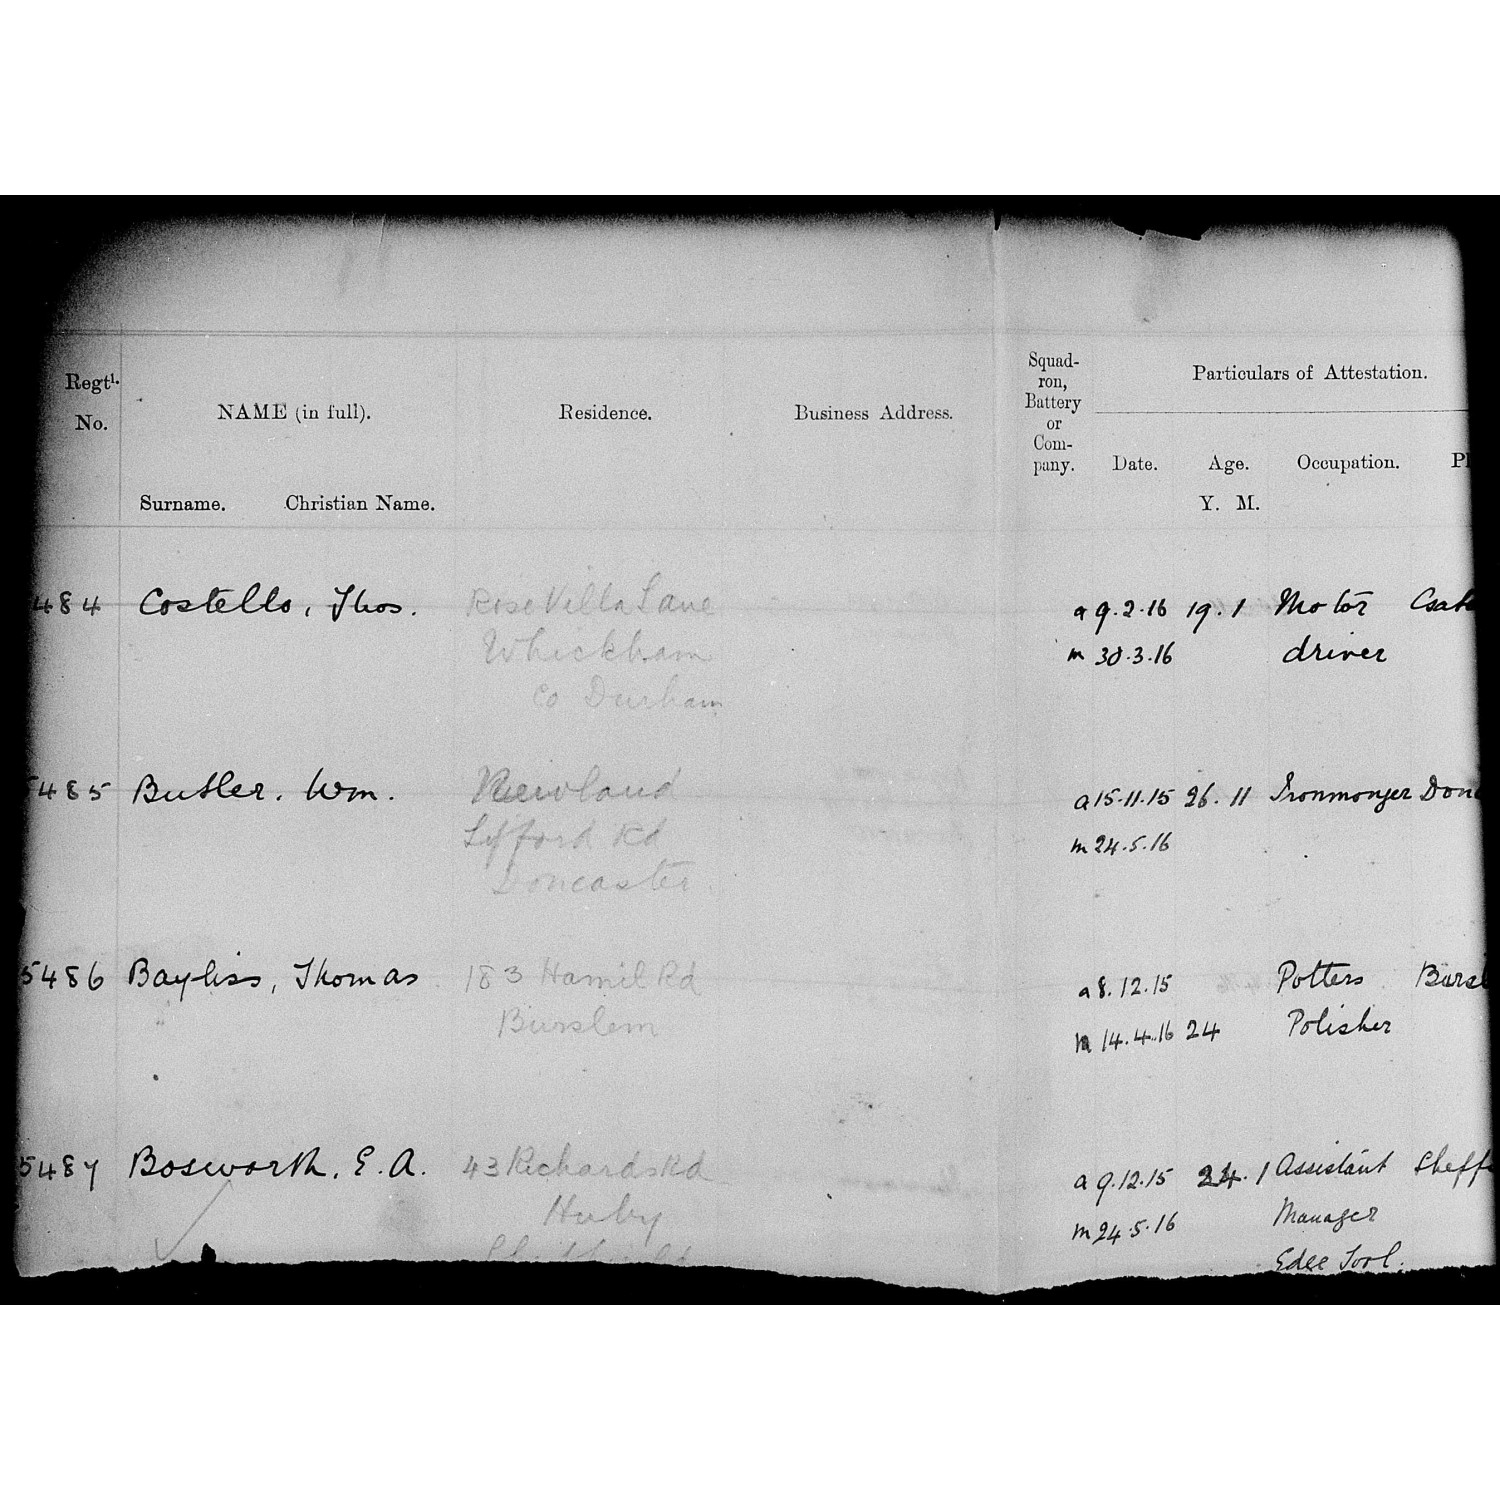 Regtl. No.
NAME (in full).
Residence.
Business Address.
Squad-
ron,
Battery
or
Com-
pany.
Particulars of Attestation.
Date.
Age.
Occupation.
Pl
Surname. Christian Name.
Y. M.
484 Costello, Thos. Rose Villa Lane a 9.2.16 19.1 Motor
Whickham m 30.3.16 driver
Co Durham
485 Butler, Wm. Newland a 15.11.15 26.11 Ironmonger Don
Rd m 24.5.16
Doncaster
5486 Bayliss, Thomas 183 Hamil Rd a 8.12.15 Potters Bursl
Burslem m 14.4.16 24 Polisher
5487 Bosworth, E. A. 43 Richards Rd a 9.12.15 24.1 Assistant Sheff
m 24.5.16 Manager
Edge Tool.